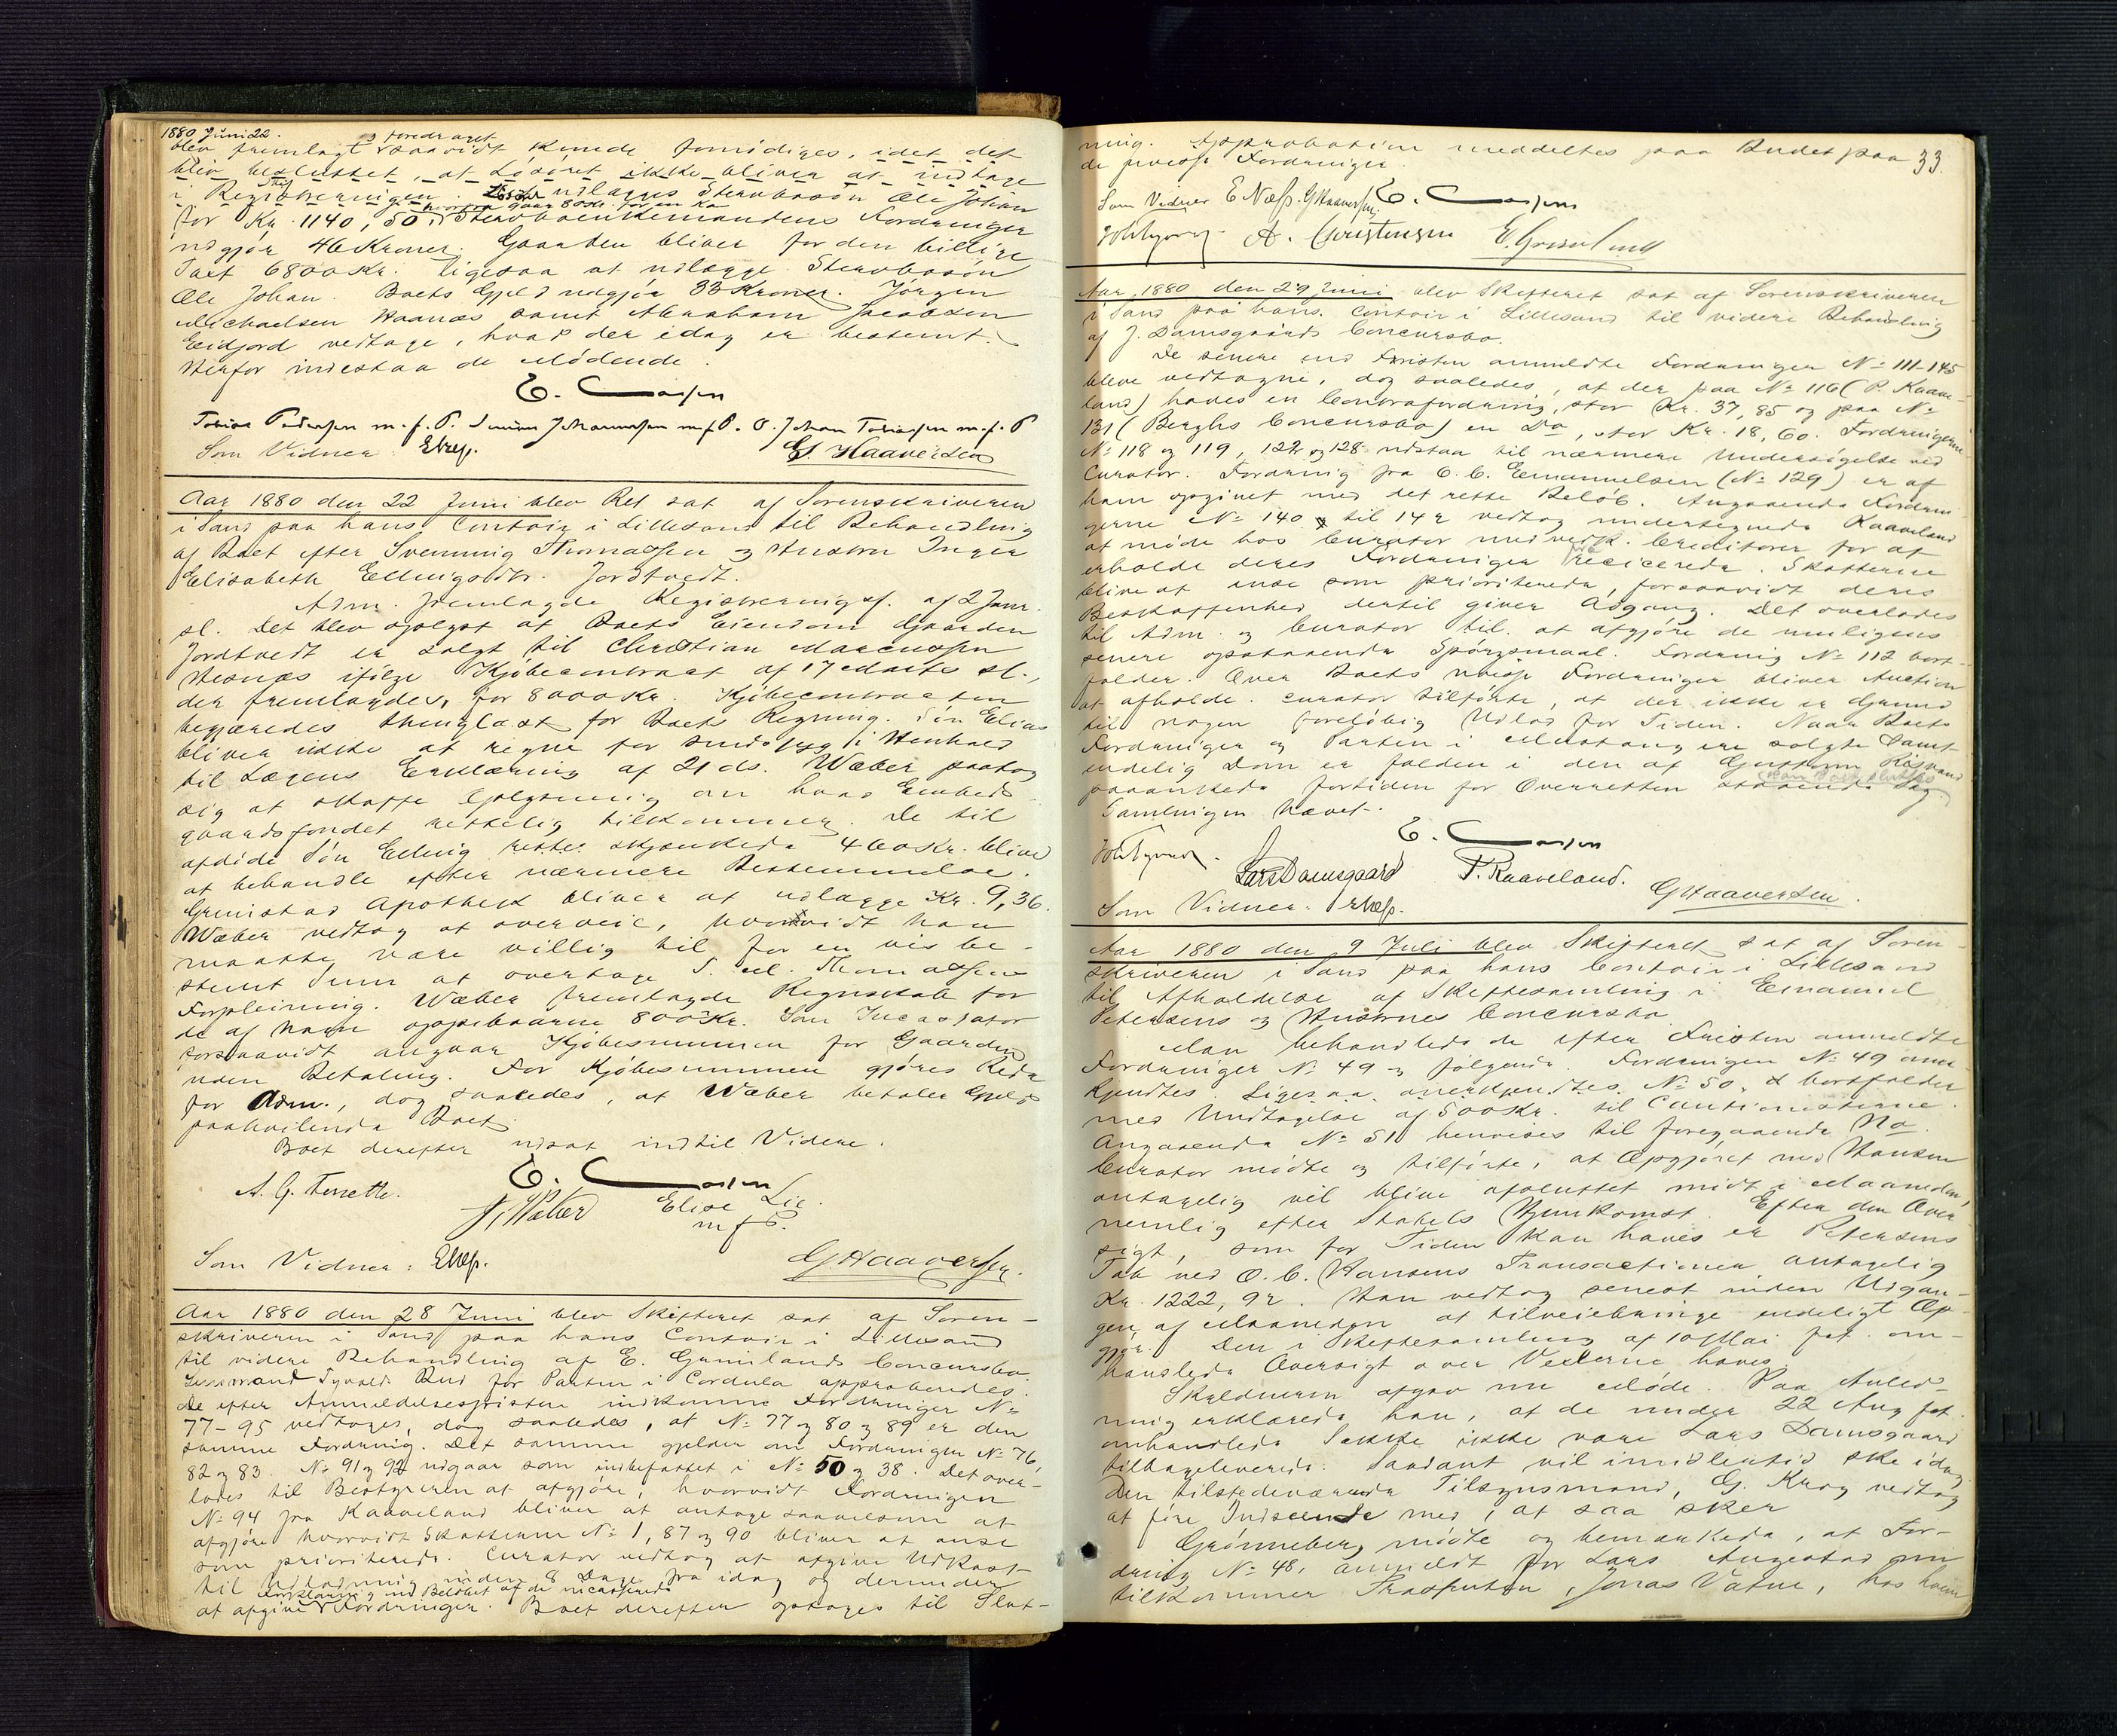 1880 Juni 22.
blev fremlagt og foredraget saavidt kunde fornødiges, idet det
blev besluttet, at Løsøret ikke bliver at indtage
i Registreringen. udlægges Stervbosøn Ole Johan
for Kr. 1140,50, hvorfra gaar 800Kr. for en Ko Stervboenkemandens Fordringer
udgjør 46 Kroner. Gaarden bliver for den billige
Taxt 6800 Kr. ligesaa at udlægge Stervbosøn
Ole Johan. Boets Gjeld udgjør 33 Kroner. Jørgen
Michaelsen Haanæs samt Abraham Jacobsen
Eidjord vedtage, hvad der idag er bestemt.
Herfor indestaa de Mødende.
Tobias Pedersen m. f. P. Johannesen m f P. O. Johan Tobiasen m. f. P
Som Vidner: ENæss. G. Haaversen
Aar 1880 den 22 Juni blev Ret sat af Sorenskriveren
i Sand paa hans Contoir i Lillesand til Behandling
af Boet efter Svenning Thomassen og Hustru Inger
Elisabeth Ellingsdtr. Jordtvedt.
Adm. fremlagde Registreringsf. af 2 Janr.
sl. Det blev oplyst at Boets Eiendom Gaarden
Jordtvedt er solgt til Christian Marcussen
Hesnæs ifølge Kjøbecontract af 17 Marts sl.,
der fremlagdes, for 8000 Kr. Kjøbecontracten
begjæredes thinglæst for Boets Regning. Søn Elias
bliver ikke at regne for sindssyg i Henhold
til Lægens Erklæring af 21 ds. Wæber paatog
sig at skaffe Oplysning om hvad Embeds-
gaardsfondet rettelig tilkommer. De til
afdøde Søn Elling skjænkede 460 Kr. blive
at behandle efter nærmere Bestemmelse.
Grimstad Apothek bliver at udlægge Kr. 9,36.
Wæber vedtog at overveie, hvorvidt han
maatte være villig til for en vis be-
stemt Sum at overtage S. Thomassens
Forpleining. Wæber fremlagde Regnskab for
de af ham oppebaarne 800 Kr. Som Incassator
forsaavidt angaar Kjøbesummen for Gaarden
uden Betaling. For Kjøbesummen gjøres Rede
for Adm., dog saaledes, at Wæber betaler Gjeld
paahvilende Boet.
Boet derefter udsat indtil Videre.
A. G. Terrette. Wæber Elise Lie
m f P.
Som Vidner: ENæss. GHaaversen.
Aar 1880 den 28 Juni blev Skifteret sat af Soren-
skriveren i Sand paa hans Contoir i Lillesand
til videre Behandling af E. Grimlands Concursbo.
Bud for Parten i Cordula approberedes.
De efter Anmeldelsesfristen indkomne Fordringer No
77-95 vedtoges, dog saaledes, at No 77 og 80 og 89 er den
samme Fordring. Det samme gjelder om Fordringen No 76,
82 og 83. No 91 og 92 udgaar som indbefattet i No 50 og 38. Det over-
lodes til Bestyreren at afgjøre, hvorvidt Fordringen
No 94 fra Kaaveland bliver at antage saavelsom at
afgjøre hvorvidt Skatterne No 1, 87 og 90 bliver at anse
som prioriterede. Curator vedtog at afgive Udkast
til Udlodning inden 8 Dage fra idag og derunder
at afgive Forklaring ved Beløbet af de incasserede Fordringer. Boet derefter optages til Slut-
33.
ning. Approbation meddeltes paa Budet paa
de uvisse Fordringer.
Som Vidner E Næss. GHaaversen.
A. Christensen E. Grimland
Aar 1880 den 29 Juni blev Skifteret sat af Sorenskriveren
i Sand paa hans Contoir i Lillesand til videre Behandling
af J. Damsgaards Concursbo.
De senere end Fristen anmeldte Fordringer No 111-145
bleve vedtagne, dog saaledes, at der paa No 116 (P. Kaave-
land) haves en Contrafordring, stor Kr. 37,85 og paa No
131 (Berghs Concursbo) en Do, stor Kr. 18,60. Fordringerne
No 118 og 119, 122 og 128 udstaa til nærmere Undersøgelse ved
Curator. Fordring fra C. C. Emanuelsen (No 129) er af
ham opgivet med det rette Beløb. Angaaende Fordrin-
gerne No 140 til 142 vedtog undertegnede Kaaveland
at møde hos Curator med vedk. Creditorer for at
erholde deres Fordringer recicerede. Skatterne
blive at anse som prioriterede, forsaavidt deres
Beskaffenhed dertil giver Adgang. Det overlodes
til Adm. og Curator til at afgjøre de muligens
senere opstaaende Spørgsmaal. Fordring No 112 bort-
falder. Over Boets uvisse Fordringer bliver Auction
at afholde. Curator tilførte, at der ikke er Grund
til nogen foreløbig Udlod. for Tiden. Naar Boets
Fordringer og Parten i Mustang ere solgte samt
endelig Dom er falden i den af Guttorm
paaankede fortiden for Overretten staaende Sag
kan Boet sluttes
Samlingen hævet.
Lars Damsgaard P. Kaaveland. GHaaversen.
Som Vidner: ENæss.
Aar 1880 den 9 Juli blev Skifteret sat af Soren-
skriveren i Sand paa hans Contoir i Lillesand
til Afholdelse af Skiftesamling i Emanuel
Petersens og Hustrues Concursbo.
Man behandlede de efter Fristen anmeldte
Fordringer No 49 og følgende. Fordringen No 49 aner-
kjendtes. Ligesaa anerkjendtes No 50, & bortfalder
med Undtagelse af 500 Kr. til Cautionisterne.
Angaaende No 51 henvises til foregaaende No.
Curator mødte og tilførte, at Opgjøret med Hansen
antagelig vil blive afsluttet midt i Maaneden,
nemlig efter Stakels Hjemkomst. Efter den Over-
sigt, som for Tiden kan haves er Petersens
Tab ved O. C. Hansens Transactioner antagelig
Kr. 1222,92. Han vedtog senest inden Udgan-
gen af Maaneden at tilveiebringe endeligt Op-
gjør. Den i Skiftesamling af 10 Mai f. om-
handlede Oversigt over Vexlerne haves.
Skyldneren afgav nu Møde. Paa Anled-
ning erklærede han, at de under 22 Aug f.
omhandlede Sække ikke vare Lars Damsgaard
tilbageleverede. Saadant vil imidlertid ske idag.
Den tilstedeværende Tilsynsmand, G. Krog vedtog
at føre Indseende med, at saa sker
Grønneberg mødte og bemærkede, at For-
dring No 48, anmeldt for Lars Angestad nu
tilkommer Jonas Vatne, hos hvem